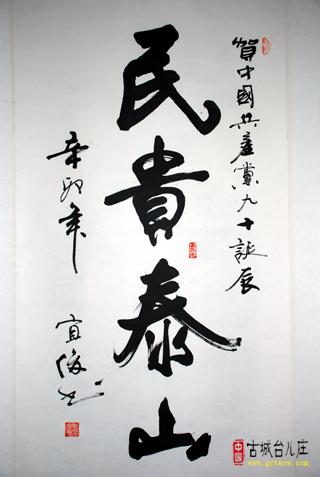 賀中國共產黨九十誕辰
民貴泰山
辛卯年
宜俊书
中国
古城台儿庄
www.gctezw.com